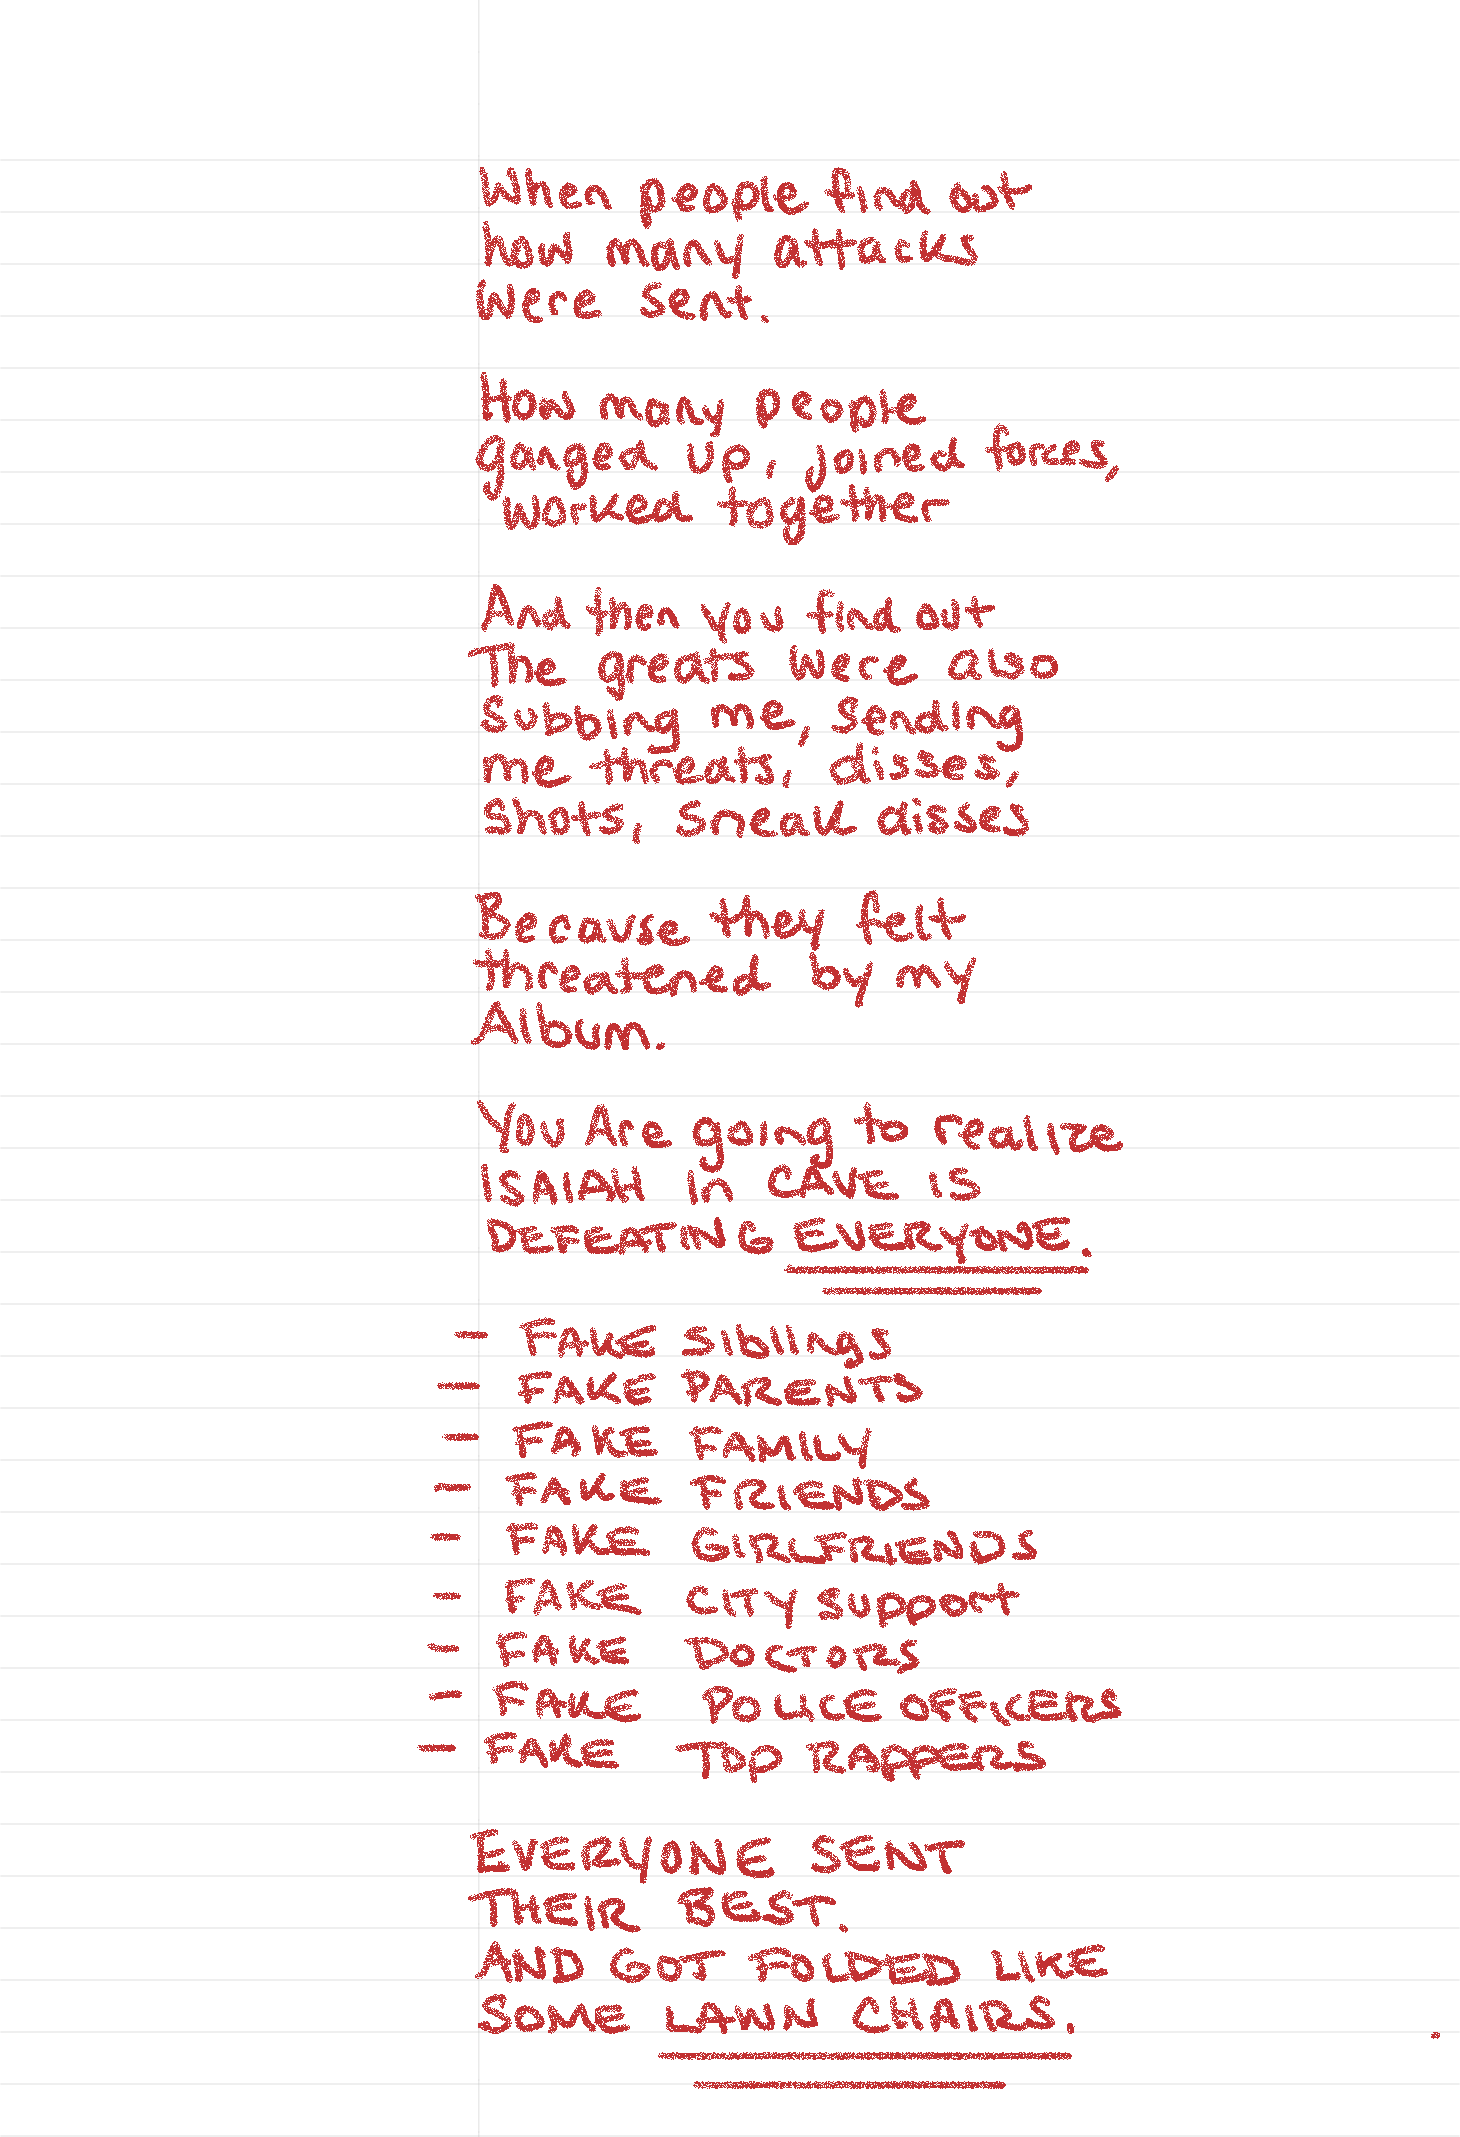 When people find out
how many attacks
were sent.
How many people
ganged up, joined forces,
worked together
And then you find out
The greats were also
subbing me, sending
me threats, disses,
shots, sneak disses
Because they felt
threatened by my
Album.
You Are going to realize
ISAIAH in CAVE IS
DEFEATING EVERYONE.
- FAKE Siblings
- FAKE PARENTS
- FAKE FAMILY
- FAKE FRIENDS
- FAKE GIRLFRIENDS
- FAKE CITY Support
- FAKE DOCTORS
- FAKE POLICE OFFICERS
- FAKE TOP RAPPERS
EVERYONE SENT
THEIR BEST.
AND GOT FOLDED LIKE
SOME LAWN CHAIRS.